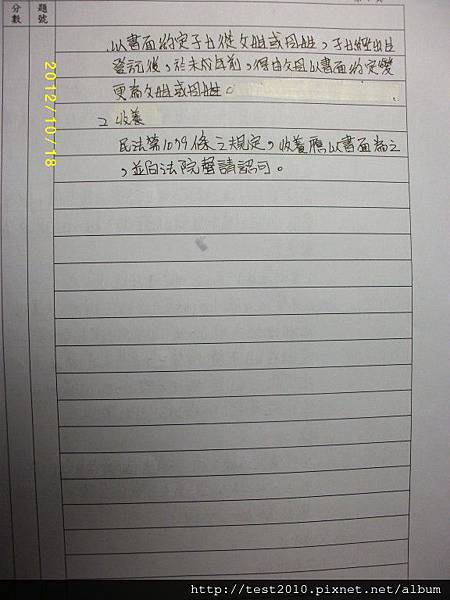 分數
題號
以書面約定子女從父姓或母姓，子女經出生
登記後，於未成年前，得由父母以書面約定變
更為父姓或母姓。
2 收養
民法第1079條之規定，收養應以書面為之
，並向法院聲請認可。
2012/10/18
http://test2010.pixnet.net/album